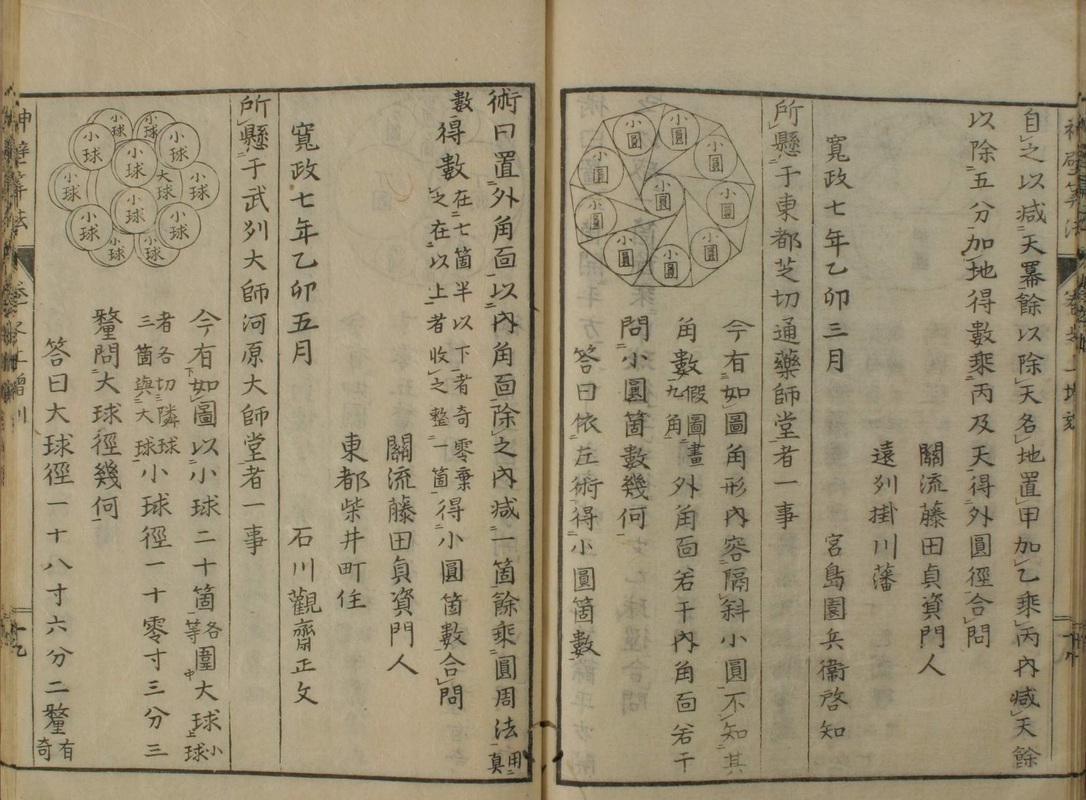 自之以減天冪餘以除天名地置甲加乙乘丙內減天餘
以除五分加地得數乘丙及天得外圓徑合問
關流藤田貞資門人
遠列掛川藩
宮島園兵衞啓知
寬政七年乙卯三月
所懸于東都芝切通藥師堂者一事
今有如圖角形內容隔斜小圓不知其
角數假圖畫九角外角面若干內角面若干
問小圓箇數幾何
答曰依左術得小圓箇數
小圓
小圓
小圓
小圓
小圓
小圓
小圓
小圓
小圓
小圓
術曰置外角面以內角面除之內減一箇餘乘圓周法用眞
數得數在七箇半以下者奇零棄之在以上者收之整一箇得小圓箇數合問
關流藤田貞資門人
東都柴井町住
石川觀齋正攵
寬政七年乙卯五月
所懸于武列大師河原大師堂者一事
今有如圖以小球二十箇各等圍大球小球
者各切隣球三箇與大球小球徑一十零寸三分三
釐問大球徑幾何
答曰大球徑一十八寸六分二釐有奇
小球
小球
小球
小球
小球
小球
大球
小球
小球
小球
小球
小球
小球